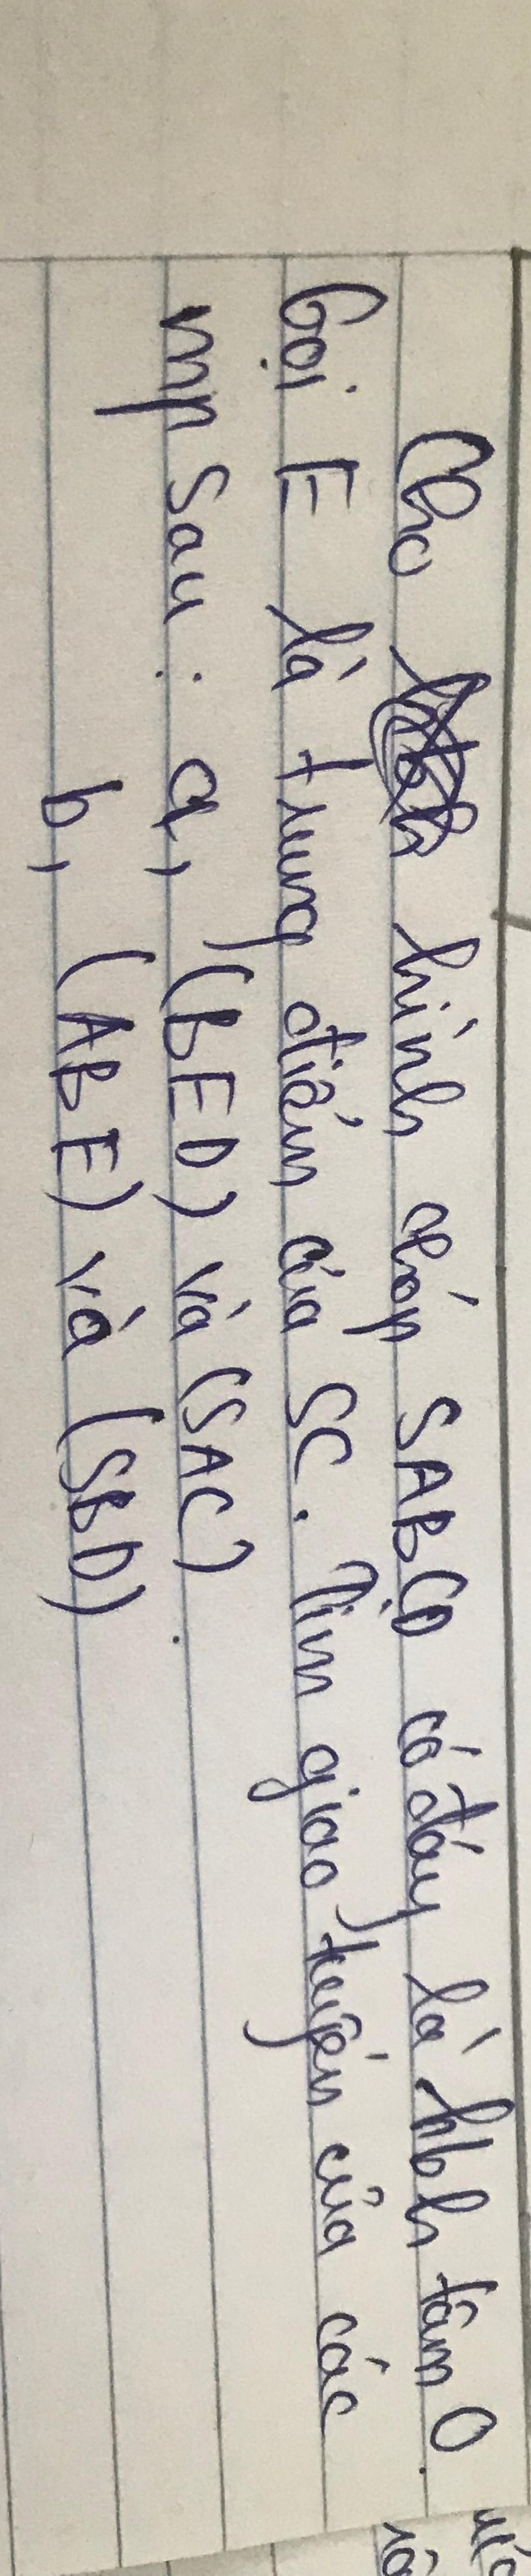 Cho hình chóp SABCD có đáy là hbh tâm O.
Gọi E là trung điểm của SC. Tìm giao tuyến của các
mp sau: a, (BED) và (SAC)
b, (ABE) và (SBD)